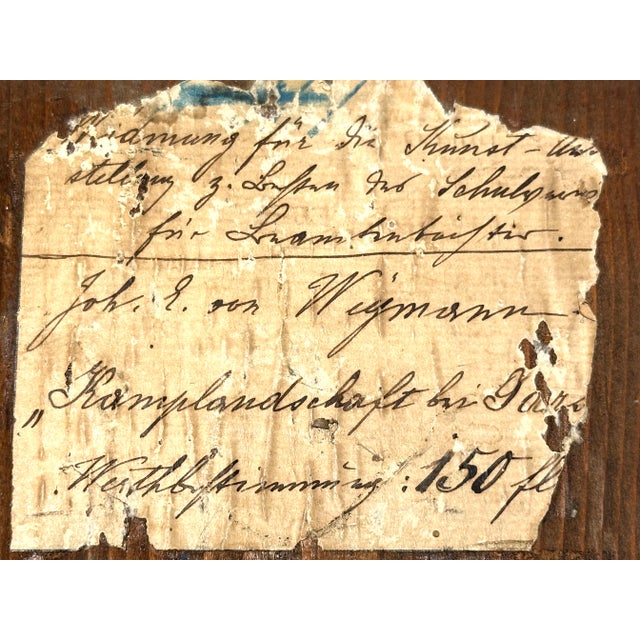 Widmung für die Kunst-Aus
stellung z. Besten des Schulvereins
für Beamtentöchter.
Joh. E. von Wijmann
„Kamplandschaft bei Gars
Werthbestimmung: 150 fl